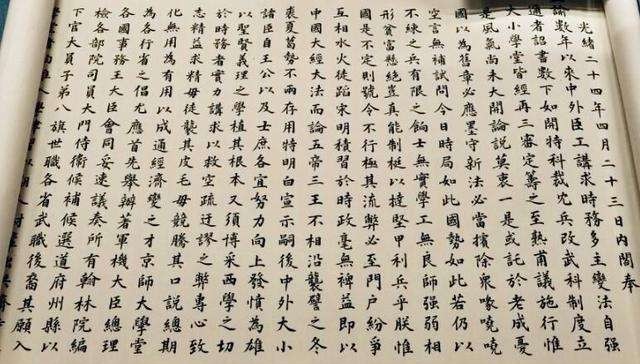 光緒二十四年四月二十三日內閣奉
諭數年以來中外臣工講求時務多主變法自強
邇者詔書數下如開特科裁冗兵改武科制度立
大小學堂皆經再三審定籌之至熟甫議施行惟
是風氣尚未大開論說莫衷一是或託於老成憂
國以為舊章必應墨守新法必當擯除衆喙嘵嘵
空言無補試問今日時局如此國勢如此若仍以
不練之兵有限之餉士無實學工無良師強弱相
形貧富懸絕豈真能制梃以撻堅甲利兵乎朕惟
國是不定則號令不行極其流弊必至門戶紛爭
互相水火徒蹈宋明積習於時政毫無裨益即以
中國大經大法而論五帝三王不相沿襲譬之冬
裘夏葛勢不兩存用特明白宣示嗣後中外大小
諸臣自王公以及士庶各宜努力向上發憤為雄
以聖賢義理之學植其根本又須博采西學之切
於時務者實力講求以救空疏迂謬之弊專心致
志精益求精毋徒襲其皮毛毋競騰其口說總期
化無用為有用以成通經濟變之才京師大學堂
為各行省之倡尤應首先舉辦著軍機大臣總理
各國事務王大臣會同妥速議奏所有翰林院編
檢各部院司員大門侍衛候補候選道府州縣以
下官大員子弟八旗世職各省武職後裔其願入